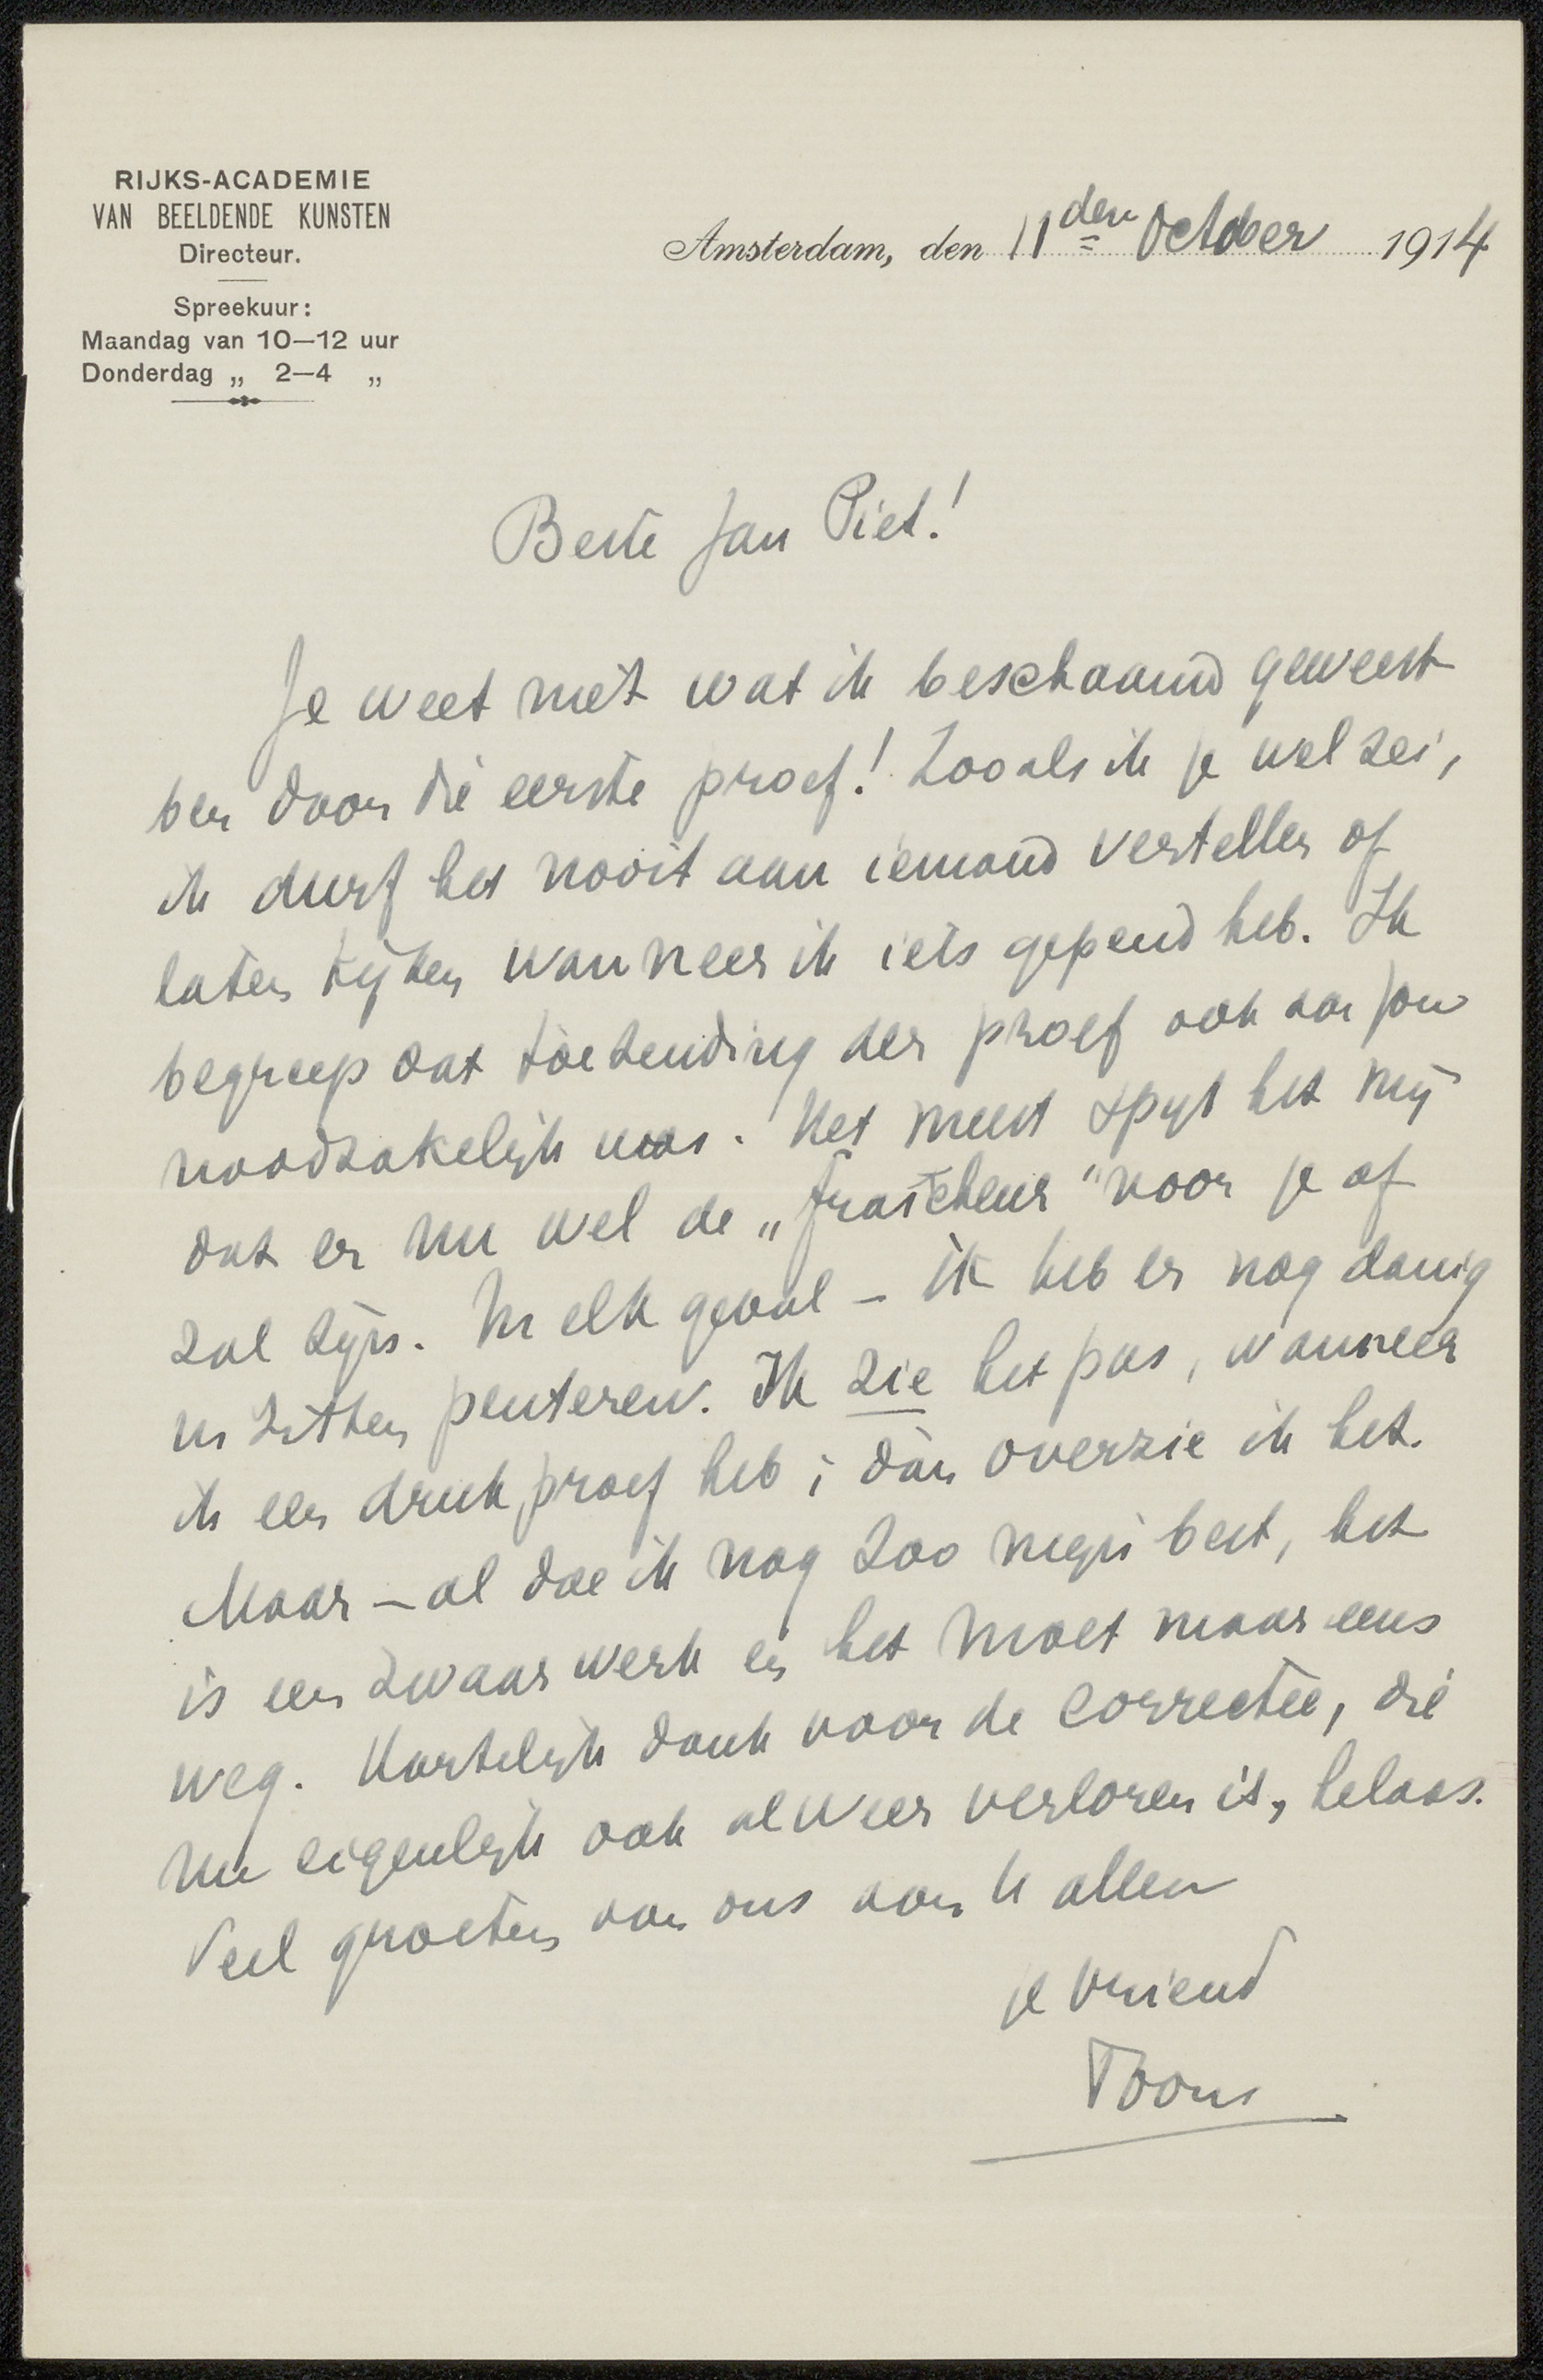 RIJKS-ACADEMIE
VAN BEELDENDE KUNSTEN
Directeur.
Spreekuur:
Maandag van 10—12 uur
Donderdag „ 2—4 „
Amsterdam, den 11den October 1914
Beste Jan Piet!
Je weet niet wat ik beschaamd geweest
ben door die eerste proef! Zooals ik je wel zei,
ik durf het nooit aan iemand vertellen of
laten kijken wanneer ik iets gepend heb. Ik
begreep dat toezending der proef ook aan jou
noodzakelijk was. Het meest spijt het mij
dat er nu wel de „fraîcheur" voor je af
zal zijn. In elk geval — ik heb er nog danig
in zitten peuteren. Ik zie het pas, wanneer
ik een drukproef heb; dàn overzie ik het.
Maar — al doe ik nog zoo mijn best, het
is een zwaar werk en het moet maar eens
weg. Hartelijk dank voor de correctie, die
nu eigenlijk ook alweer verloren is, helaas.
Veel groeten van ons aan U allen
je vriend
Toon